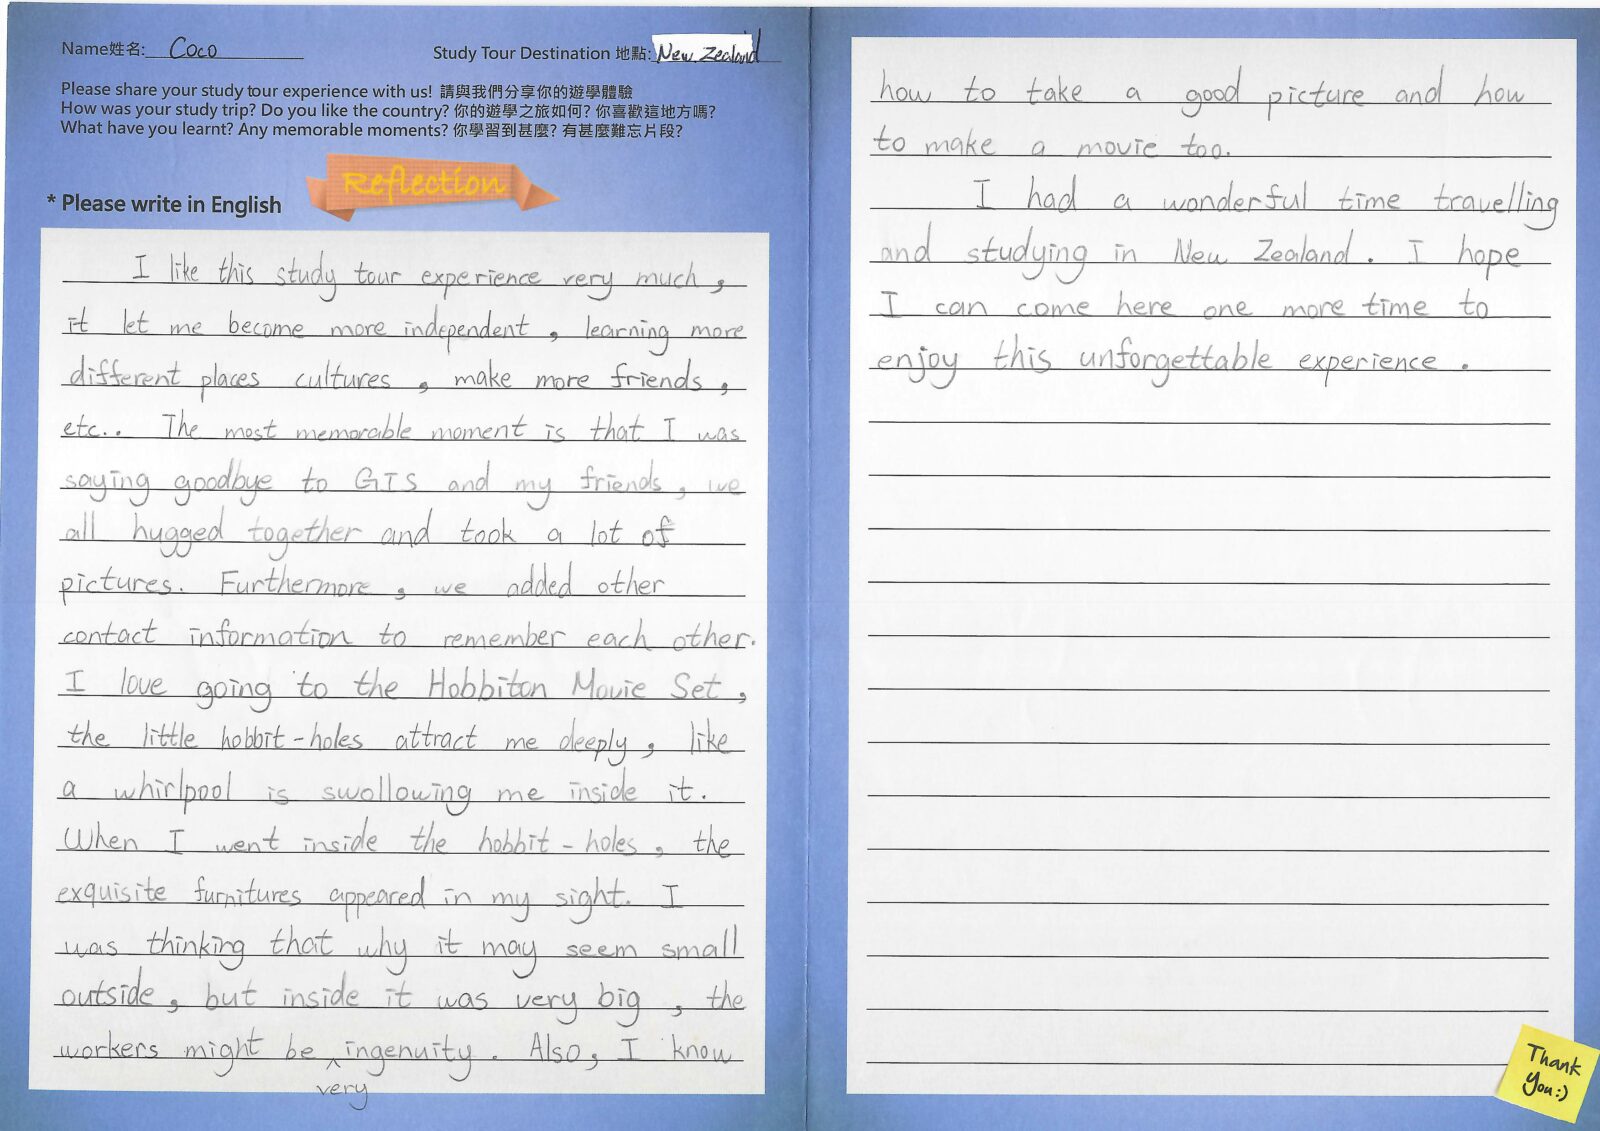 Name姓名: Coco
Study Tour Destination 地點: New Zealand
Please share your study tour experience with us! 請與我們分享你的遊學體驗
How was your study trip? Do you like the country? 你的遊學之旅如何? 你喜歡這地方嗎?
What have you learnt? Any memorable moments? 你學習到甚麼? 有甚麼難忘片段?
Reflection
* Please write in English
I like this study tour experience very much,
it let me become more independent, learning more
different places cultures, make more friends,
etc.. The most memorable moment is that I was
saying goodbye to GIS and my friends, we
all hugged together and took a lot of
pictures. Furthermore, we added other
contact information to remember each other.
I love going to the Hobbiton Movie Set,
the little hobbit-holes attract me deeply, like
a whirlpool is swallowing me inside it.
When I went inside the hobbit-holes, the
exquisite furnitures appeared in my sight. I
was thinking that why it may seem small
outside, but inside it was very big, the
workers might be ^ ingenuity. Also, I know
very
how to take a good picture and how
to make a movie too.
I had a wonderful time travelling
and studying in New Zealand. I hope
I can come here one more time to
enjoy this unforgettable experience.
Thank
You:)